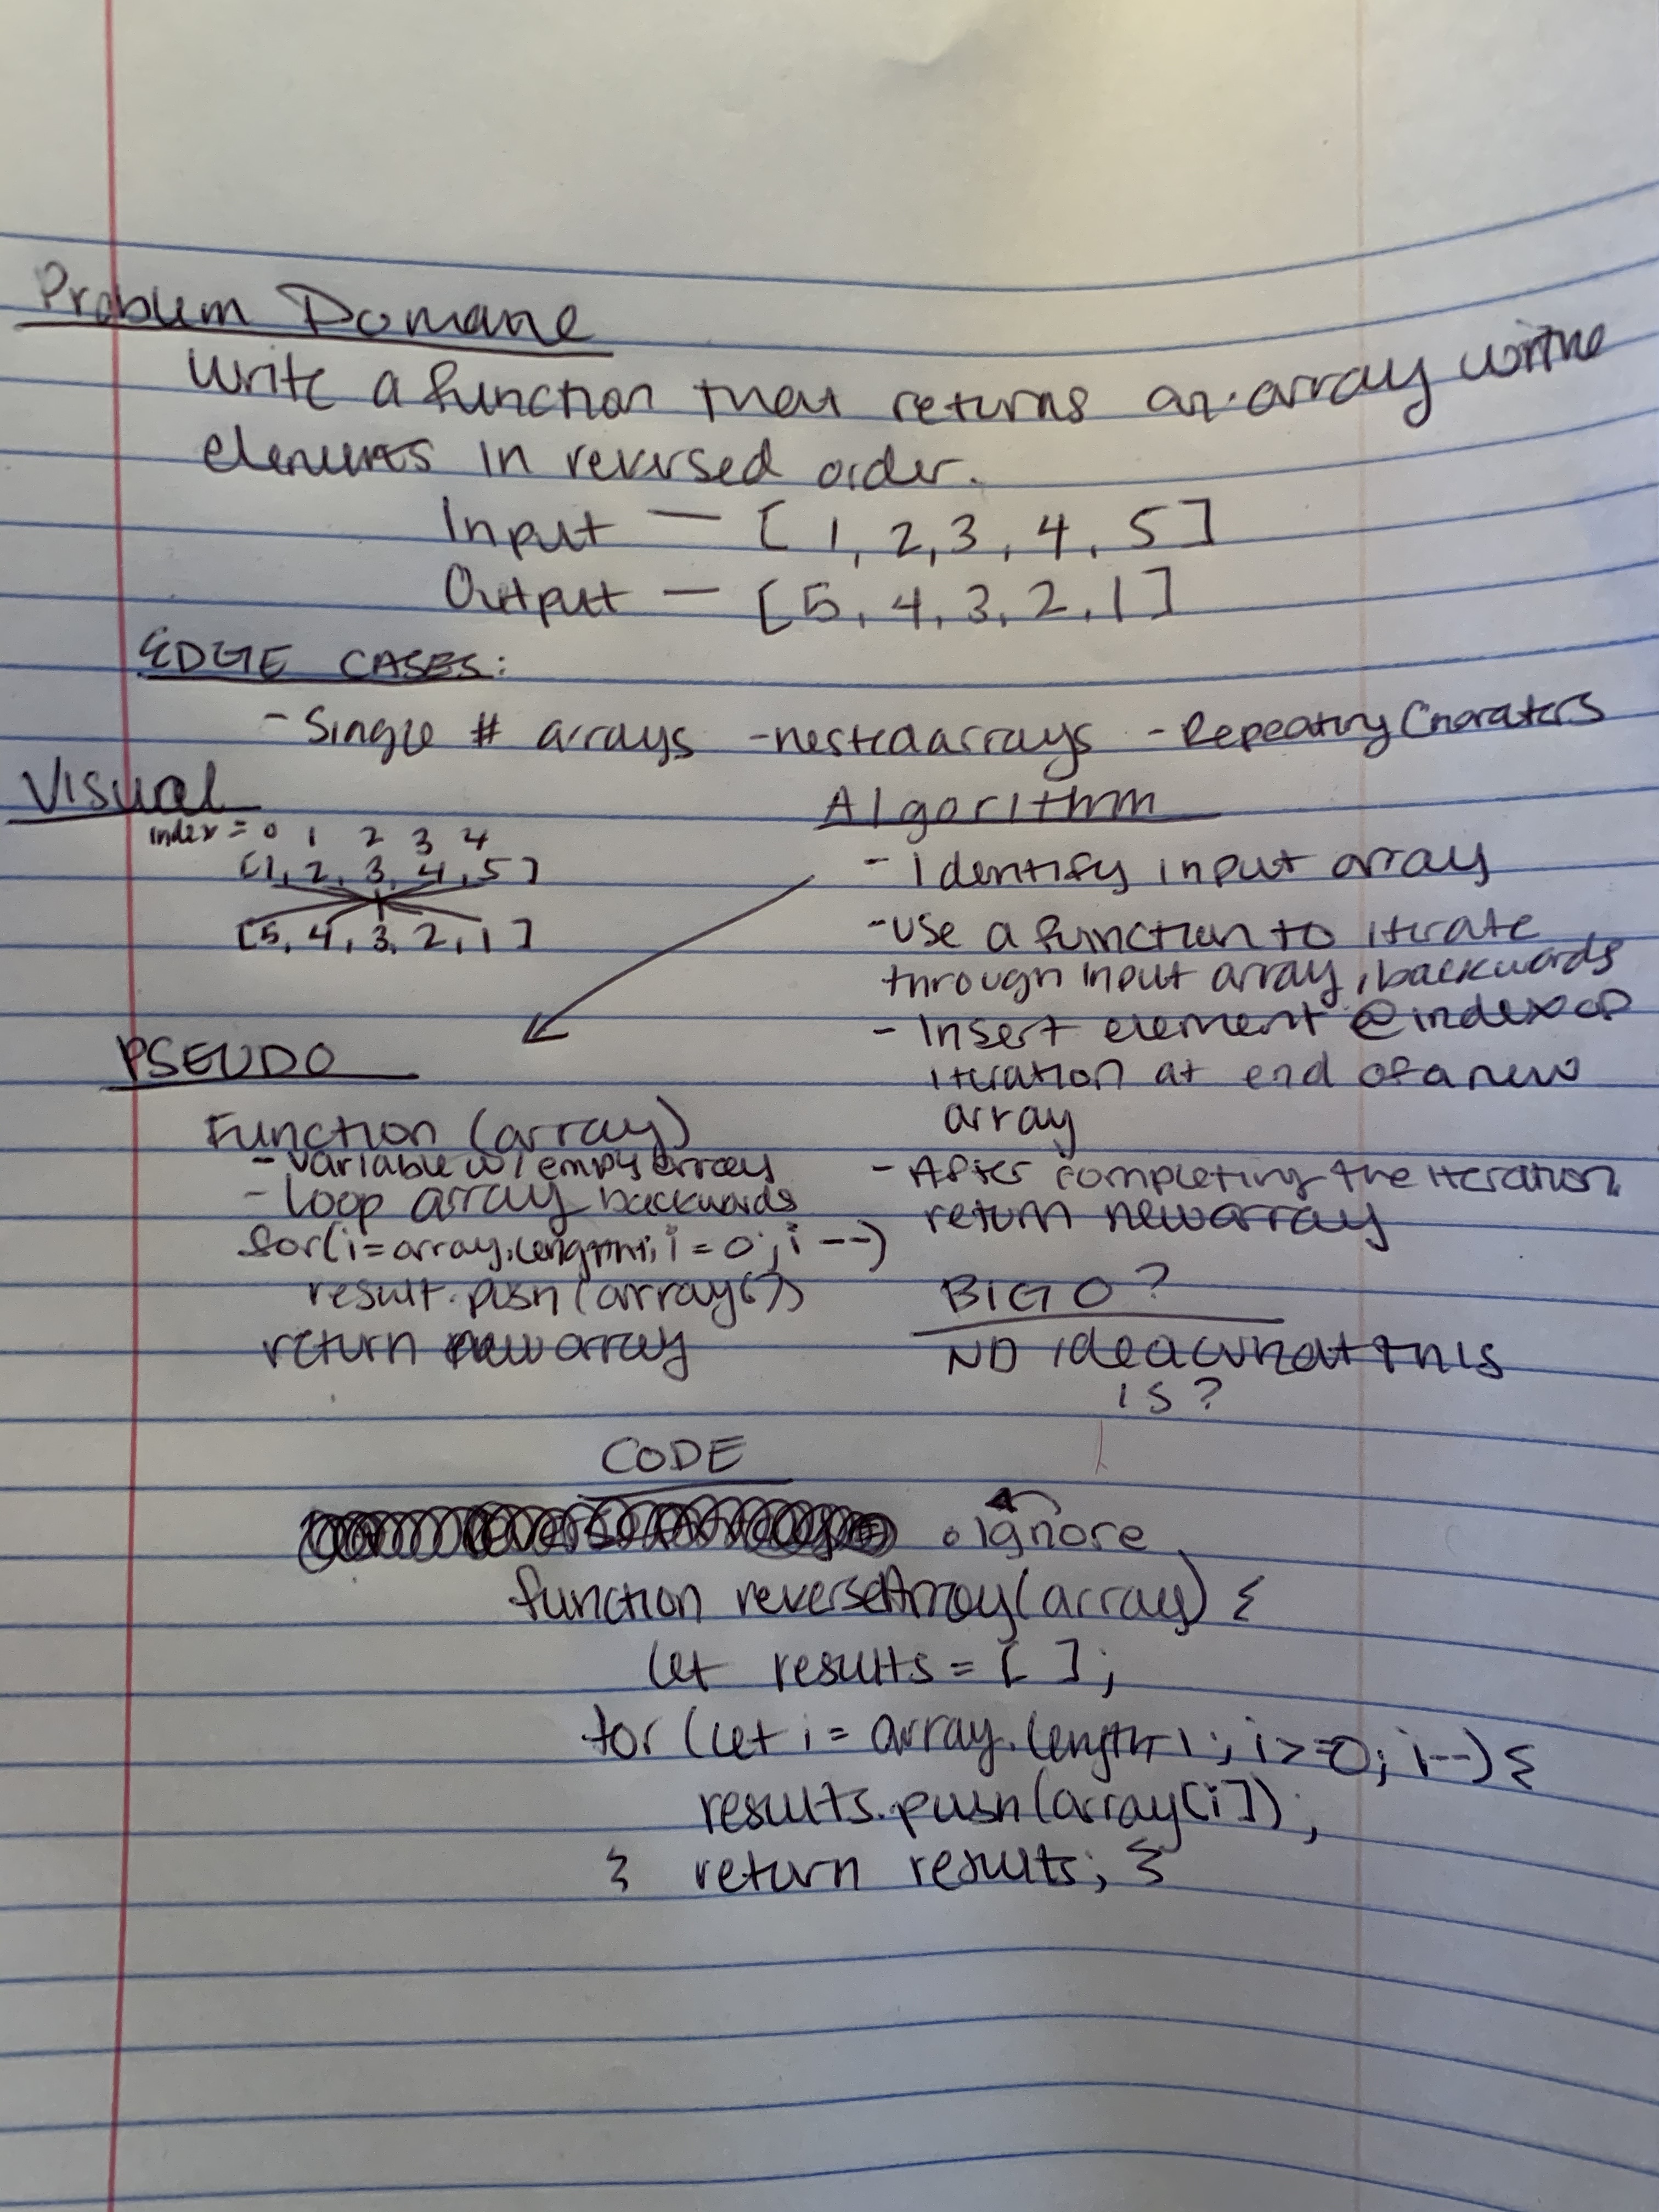 Problem Domane
Write a function that returns an array with the
elements in reversed order.
Input — [1, 2, 3, 4, 5]
Output — [5, 4, 3, 2, 1]
EDGE CASES:
- Single # arrays - nested arrays - Repeating Charaters
Visual
index = 0 1 2 3 4
[1, 2, 3, 4, 5]
[5, 4, 3, 2, 1]
Algorithm
- Identify input array
- Use a function to iterate
through input array, backwards
- Insert element @ index of
iteration at end of a new
array
- After completing the iteration,
return new array
PSEUDO
Function (array)
- variable w/ empy array
- Loop array backwards
for(i = array.length-1; i = 0; i --)
result.push (array[i])
return new array
BIG O?
NO idea what this
is?
CODE
Ignore
function reverseArray(array) {
let results = [ ];
for (let i = array.length-1; i >= 0; i--) {
results.push(array[i]);
} return results; }